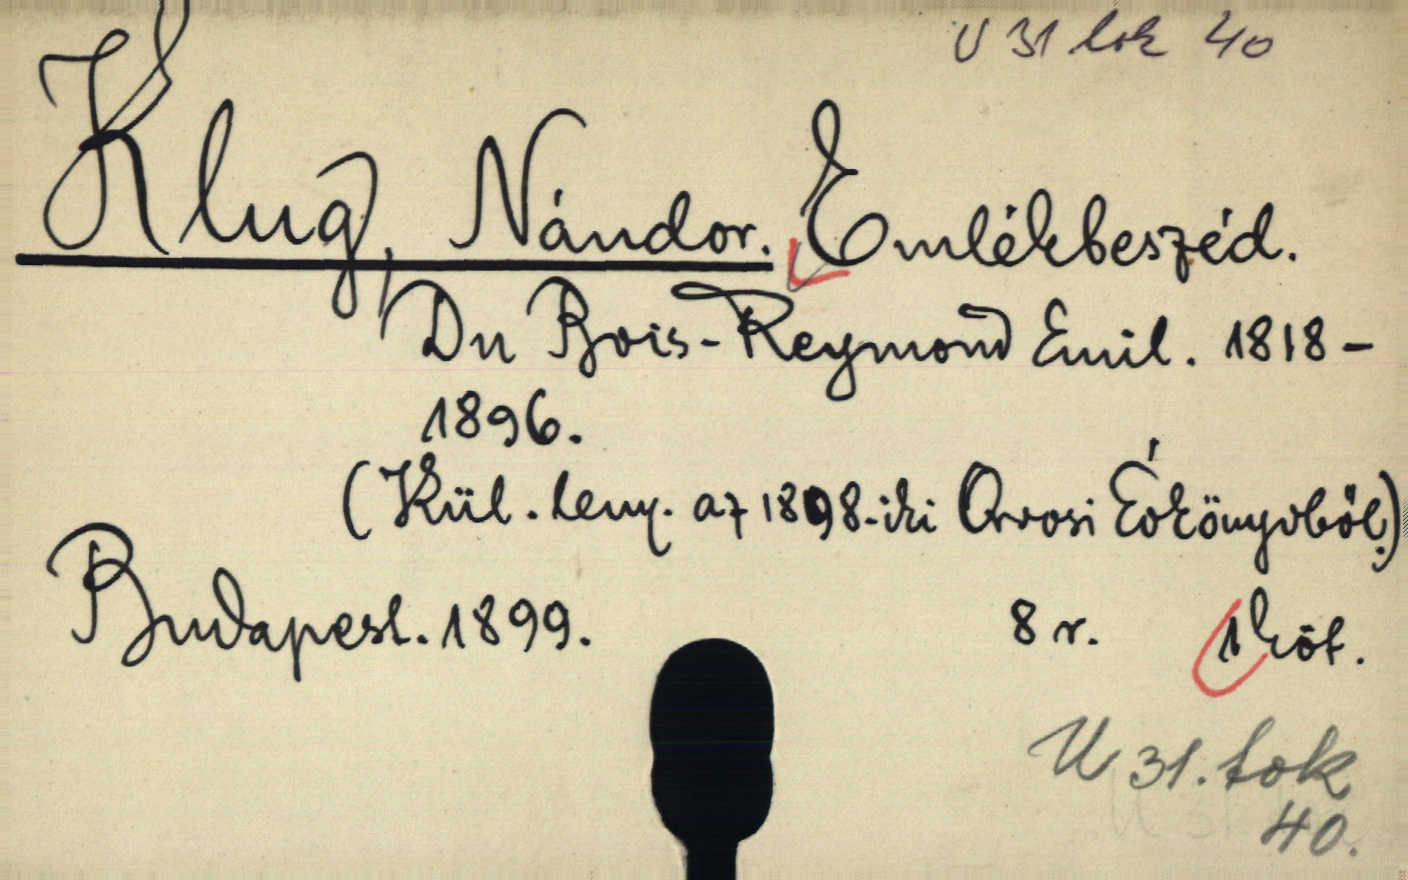 U 31 tok 40
Klug, Nándor. Emlékbeszéd.
Du Bois-Reymond Emil. 1818-
1896.
(Kül. leny. az 1898-iki Orvosi Évkönyvből.)
Budapest. 1899. 8 r. 1 köt.
U 31. tok
40.